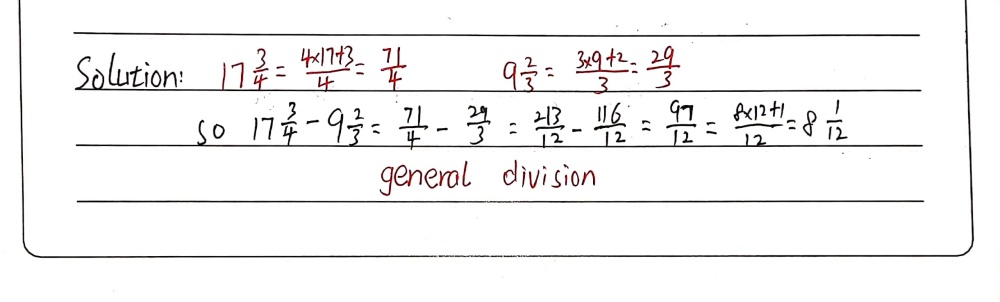 Solution: 17 3/4 = (4×17+3)/4 = 71/4 9 2/3 = (3×9+2)/3 = 29/3
so 17 3/4 - 9 2/3 = 71/4 - 29/3 = 213/12 - 116/12 = 97/12 = (8×12+1)/12 = 8 1/12
general division